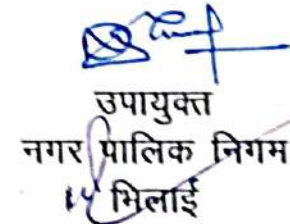 उपायुक्त
नगर पालिक निगम
भिलाई